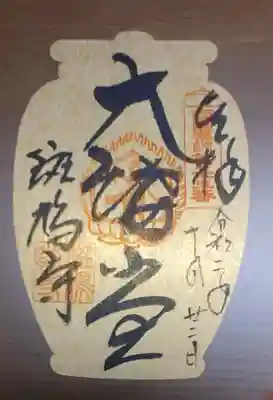 奉拝 令和二年
十月廿二日
大講堂
斑鳩寺